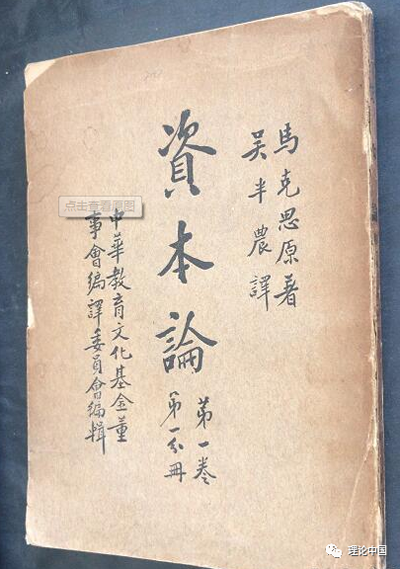 馬克思原著
吴半農譯
資本論
第一卷
第一分冊
中華教育文化基金董
事會編譯委員會編輯
点击查看原图
理论中国